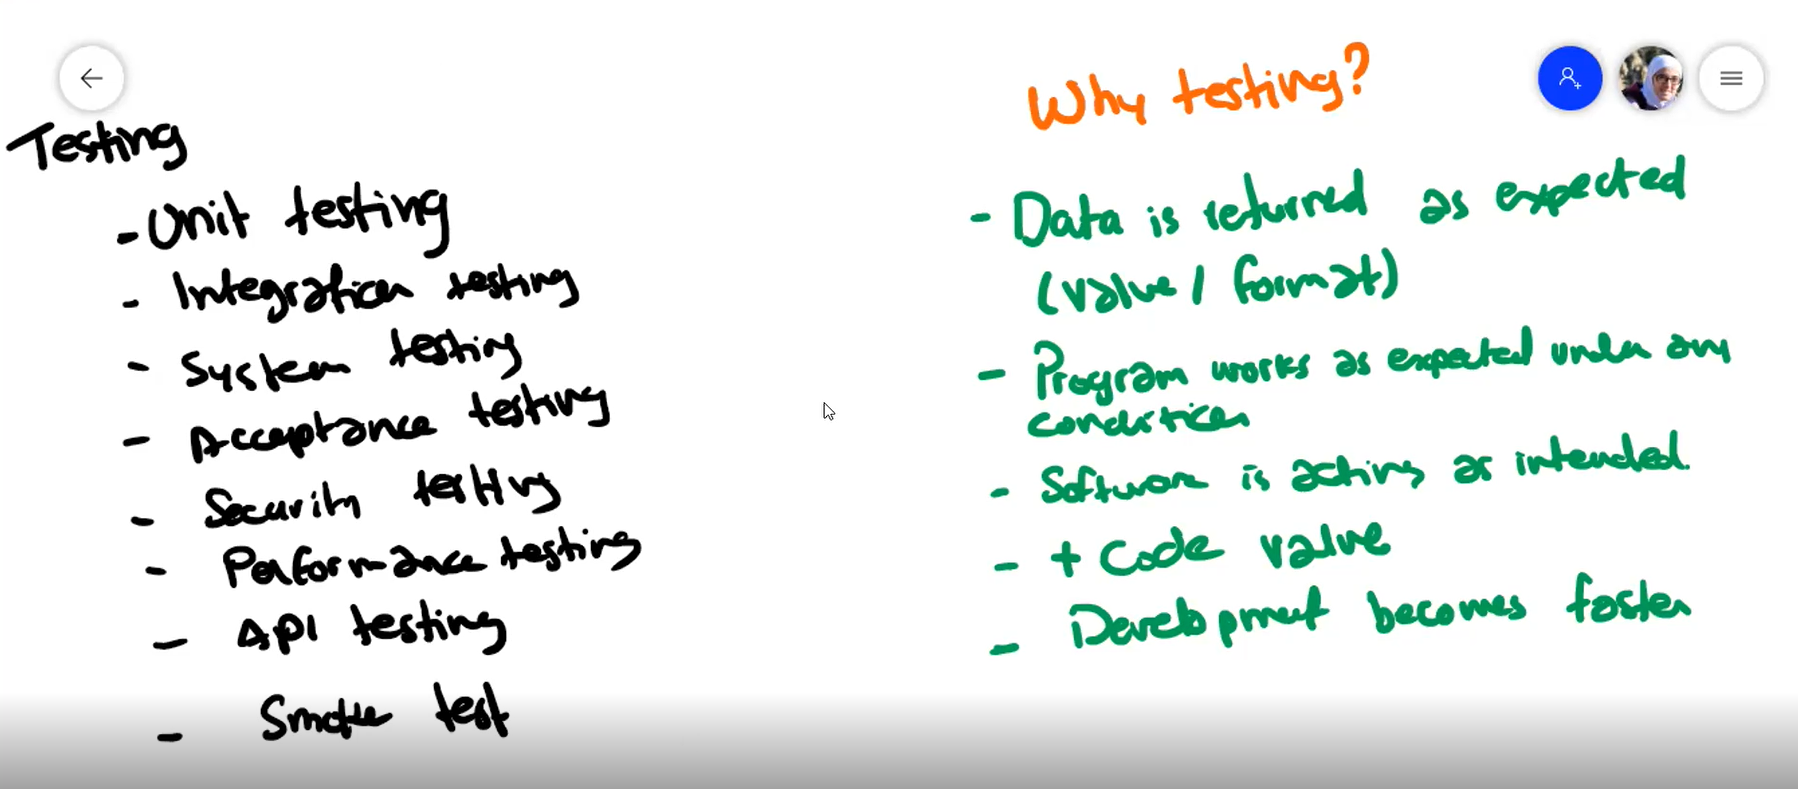 Testing
- Unit testing
- Integration testing
- System testing
- Acceptance testing
- Security testing
- Performance testing
- API testing
- Smoke test
Why testing?
- Data is returned as expected
(value / format)
- Program works as expected under any
condition
- Software is acting as intended.
- + Code value
- Development becomes faster